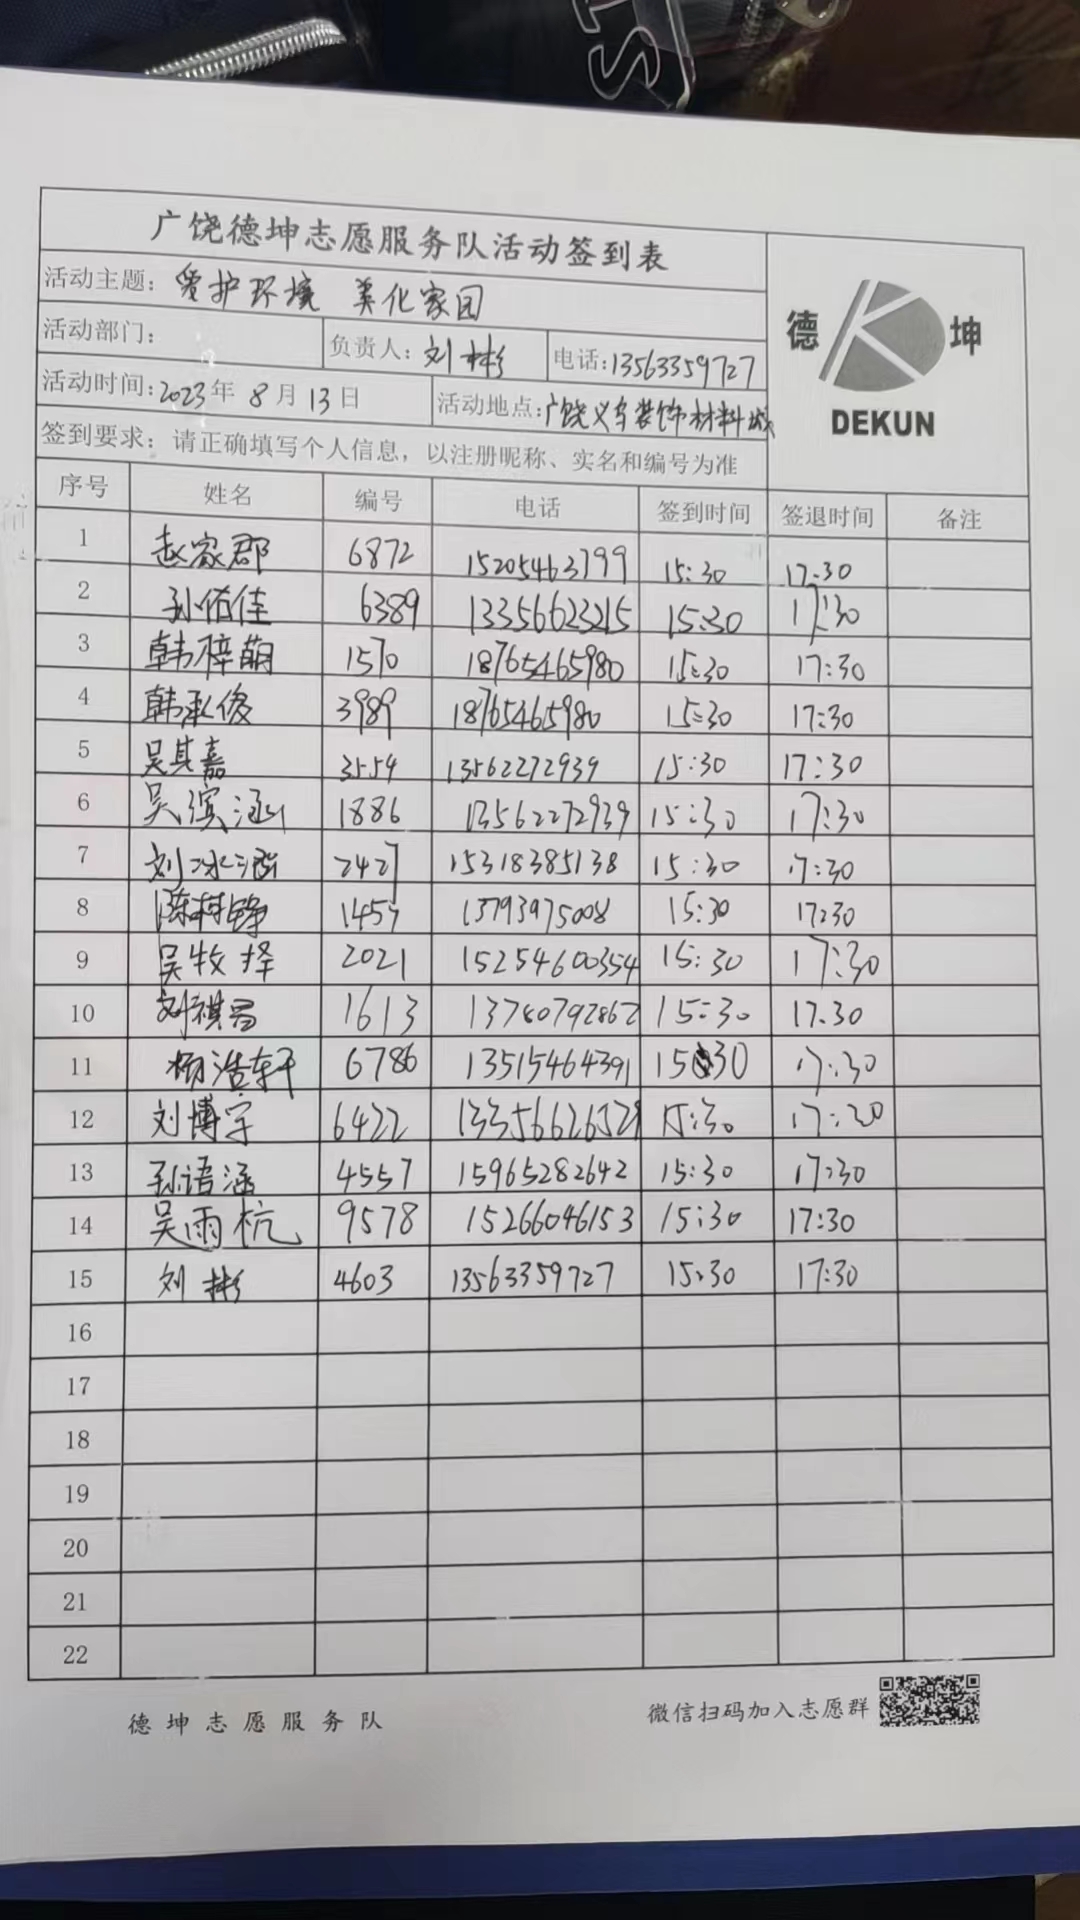 广饶德坤志愿服务队活动签到表
活动主题：爱护环境 美化家园
活动部门： 负责人：刘彬 电话：13563359727
德 坤
DEKUN
活动时间：2023年 8月 13日 活动地点：广饶义乌装饰材料城
签到要求：请正确填写个人信息，以注册昵称、实名和编号为准
序号 姓名 编号 电话 签到时间 签退时间 备注
1 赵家郡 6872 15205463799 15:30 17:30
2 孙佑佳 6389 13356623215 15:30 17:30
3 韩梓萌 1570 18765465980 15:30 17:30
4 韩承俊 3989 18765465980 15:30 17:30
5 吴其嘉 3554 13562272939 15:30 17:30
6 吴滨涵 1886 13562272939 15:30 17:30
7 刘冰涵 2427 15318385138 15:30 17:30
8 陈树锋 1457 13793975008 15:30 17:30
9 吴牧择 2021 15254600354 15:30 17:30
10 刘祺昌 1613 15:30 17:30
11 杨浩轩 6786 13515464391 15:30 17:30
12 刘博宇 6422 15:30 17:30
13 孙语涵 4557 15965282642 15:30 17:30
14 吴雨杭 9578 15266046153 15:30 17:30
15 刘彬 4603 13563359727 15:30 17:30
16
17
18
19
20
21
22
德坤志愿服务队 微信扫码加入志愿群